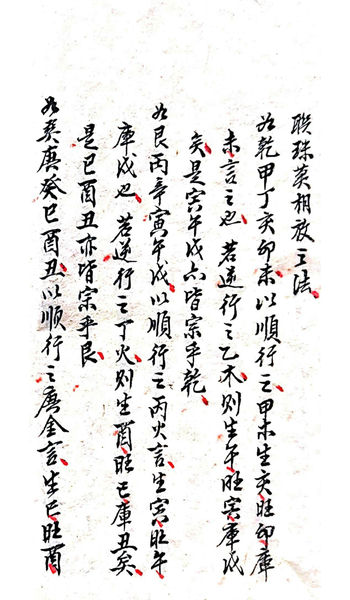 联珠英相放之法
如乾甲丁亥卯未以順行之甲木生亥旺卯庫
未言之也若逆行之乙木则生午旺寅庫戌
矣是寅午戌亦皆宗乎乾
如艮丙辛寅午戌以順行之丙火言生寅旺午
庫戌也若逆行之丁火则生酉旺巳庫丑矣
是巳酉丑亦皆宗乎艮
如巽庚癸巳酉丑以顺行之庚金言生巳旺酉